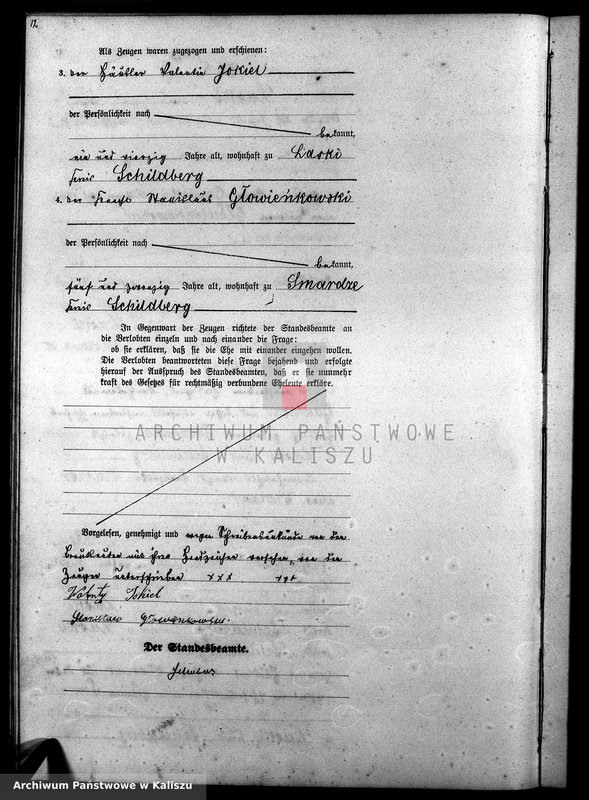 12
Als Zeugen waren zugezogen und erschienen:
3. der Häusler Valentin Jokiel
der Persönlichkeit nach
bekannt,
ein und vierzig Jahre alt, wohnhaft zu Laski
Kreis Schildberg
4. der Knecht Stanislaus Głowieńkowski
der Persönlichkeit nach
bekannt,
fünf und zwanzig Jahre alt, wohnhaft zu Smardze
Kreis Schildberg
In Gegenwart der Zeugen richtete der Standesbeamte an
die Verlobten einzeln und nach einander die Frage:
ob sie erklären, daß sie die Ehe mit einander eingehen wollen.
Die Verlobten beantworteten diese Frage bejahend und erfolgte
hierauf der Ausspruch des Standesbeamten, daß er sie nunmehr
kraft des Gesetzes für rechtmäßig verbundene Eheleute erkläre.
ARCHIWUM PAŃSTWOWE
W KALISZU
Vorgelesen, genehmigt und wegen Schreibensunkunde von den
Brautleuten mit ihren Handzeichen versehen, von den
Zeugen unterschrieben xxx +++
Jokiel
Der Standesbeamte.
Archiwum Państwowe w Kaliszu